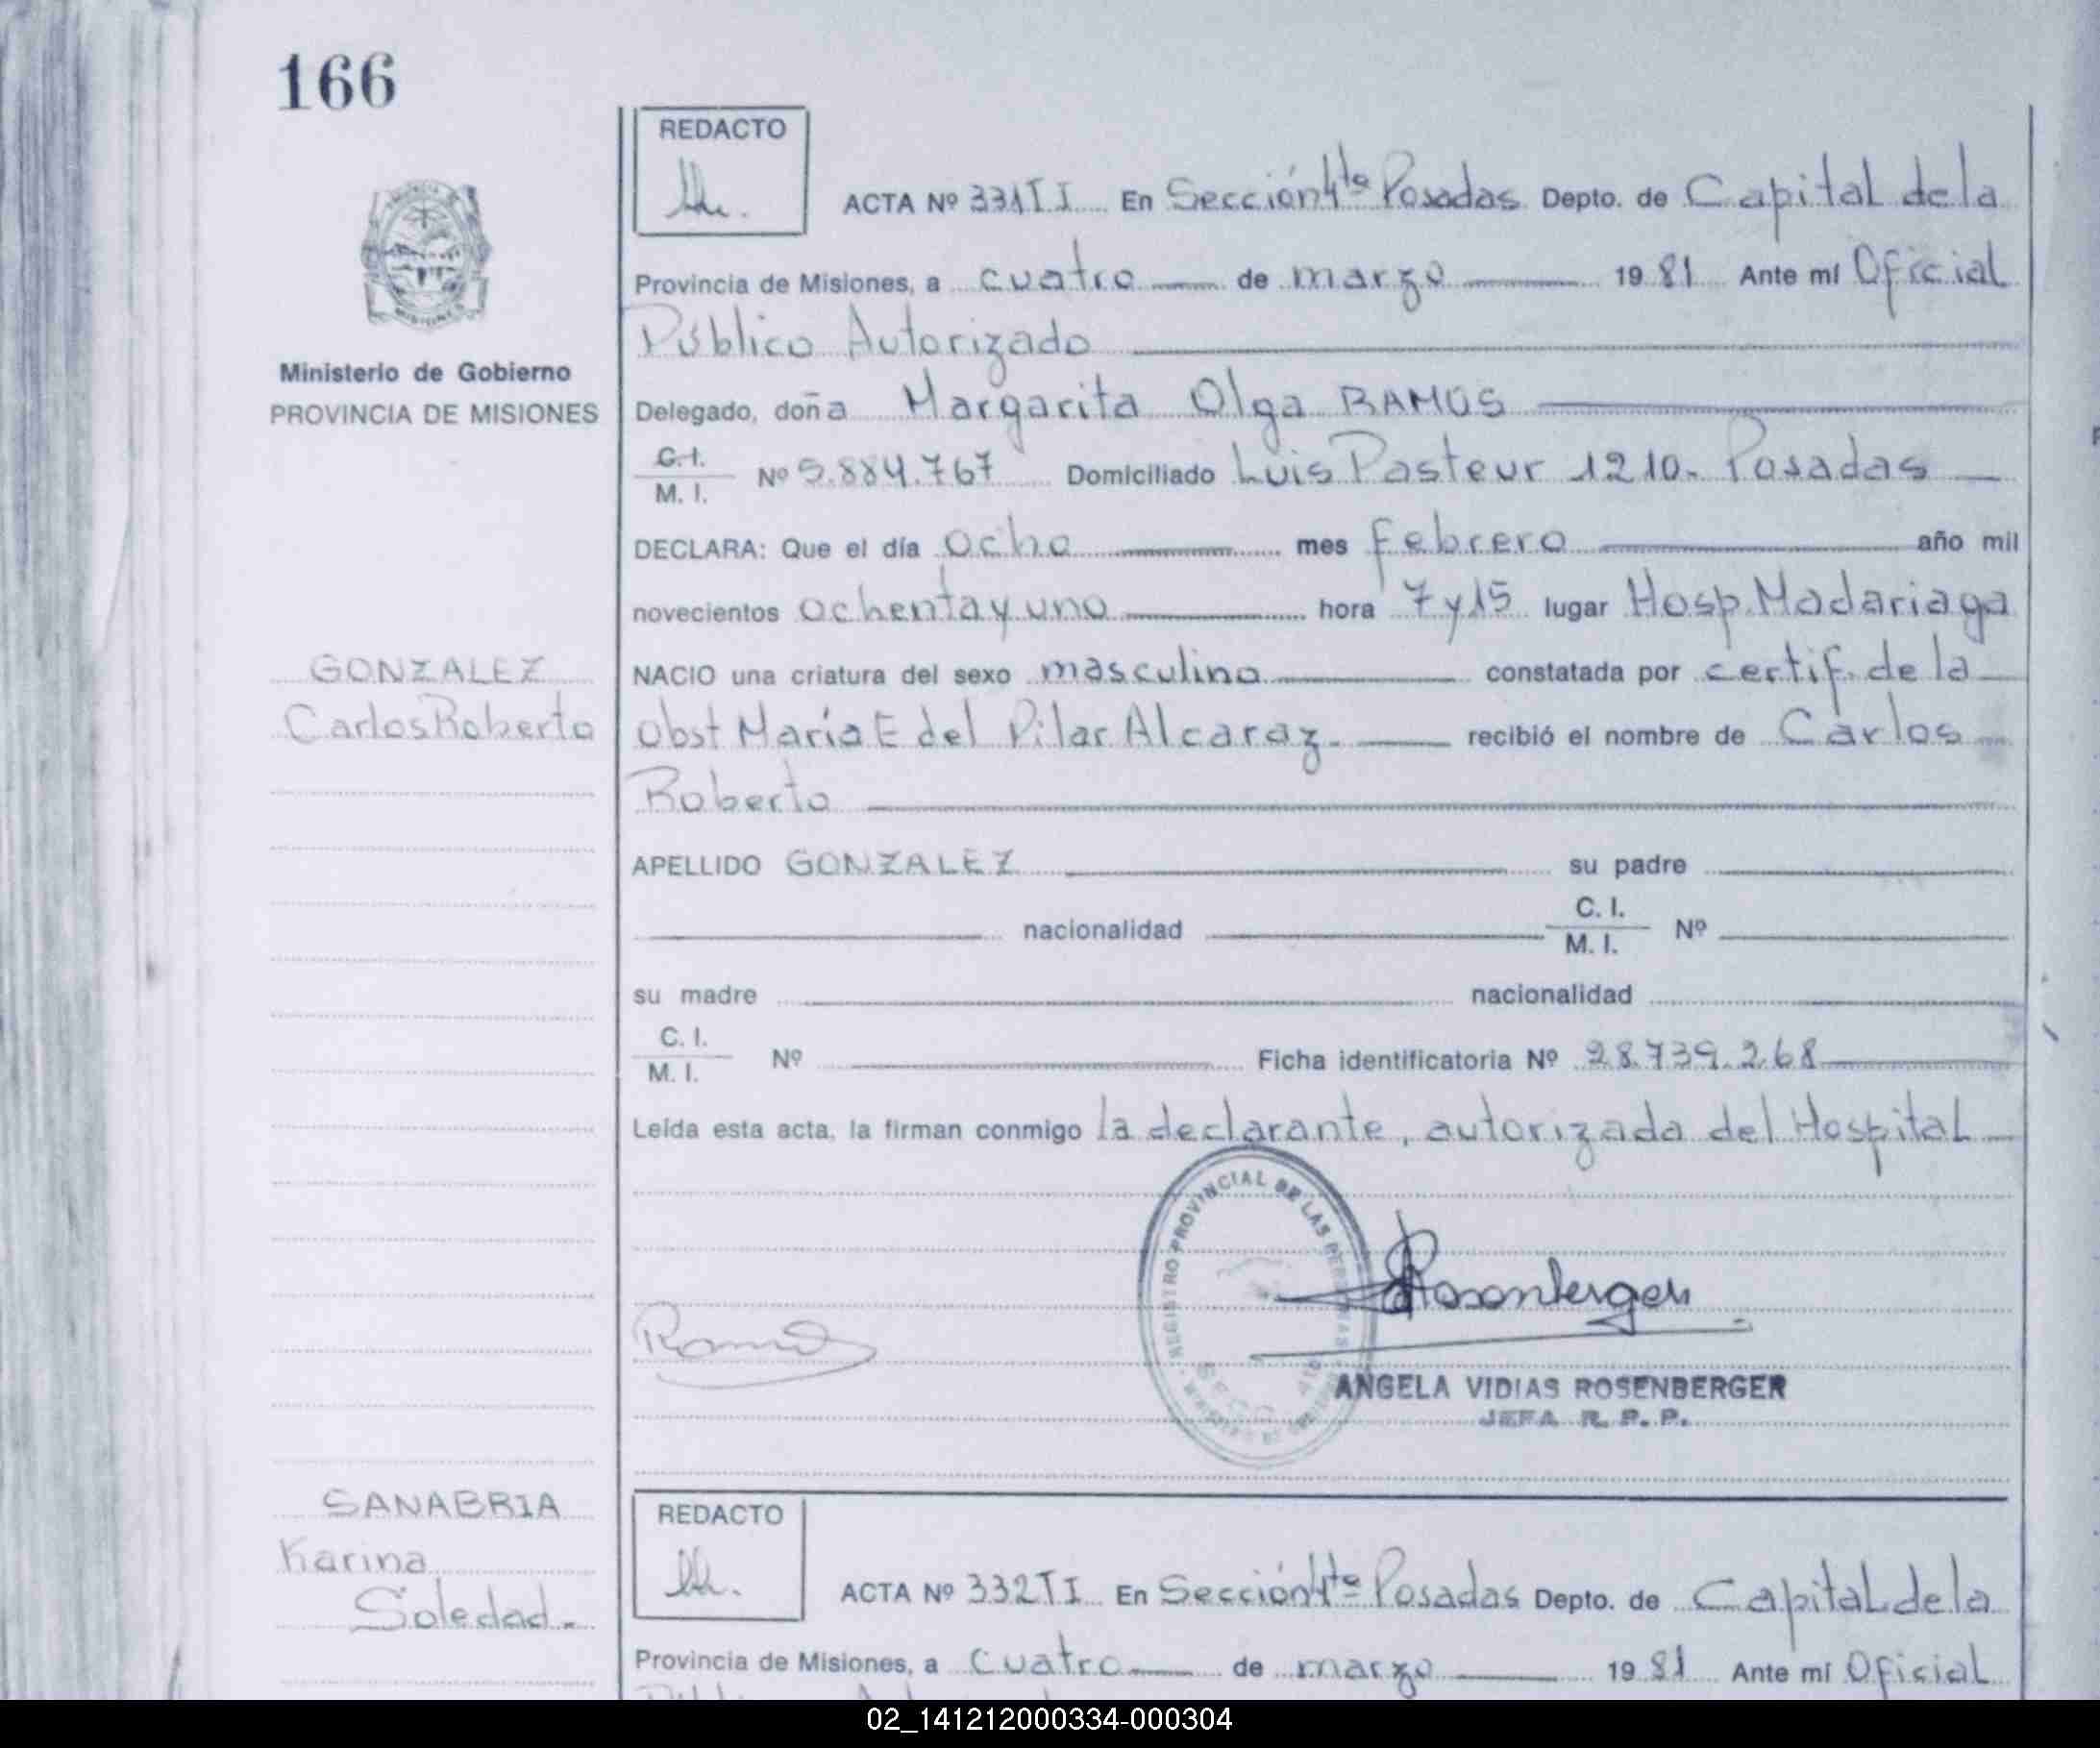 166
REDACTO
ACTA Nº 331TI En Sección 4ta Posadas Depto. de Capital de la
Provincia de Misiones, a cuatro de marzo 1981 Ante mí Oficial
Público Autorizado
Ministerio de Gobierno
PROVINCIA DE MISIONES
Delegado, doña Margarita Olga RAMOS
C.I. M. I. Nº 5.884.767 Domiciliado Luis Pasteur 1210. Posadas
DECLARA: Que el día ocho mes febrero año mil
novecientos ochenta y uno hora 7 y 15 lugar Hosp. Madariaga
GONZALEZ
Carlos Roberto
NACIO una criatura del sexo masculino constatada por certif. de la
Obst María E del Pilar Alcaraz. recibió el nombre de Carlos
Roberto
APELLIDO GONZALEZ su padre
nacionalidad C. I. M. I. Nº
su madre nacionalidad
C. I. M. I. Nº Ficha identificatoria Nº 28.739.268
Leída esta acta, la firman conmigo la declarante, autorizada del Hospital
REGISTRO PROVINCIAL DE LAS PERSONAS
Ramos
Rosenberger
ANGELA VIDIAS ROSENBERGER
JEFA R. P. P.
SANABRIA
Karina
Soledad.
REDACTO
ACTA Nº 332TI En Sección 4ta Posadas Depto. de Capital de la
Provincia de Misiones, a cuatro de marzo 1981 Ante mí Oficial
02_141212000334-000304